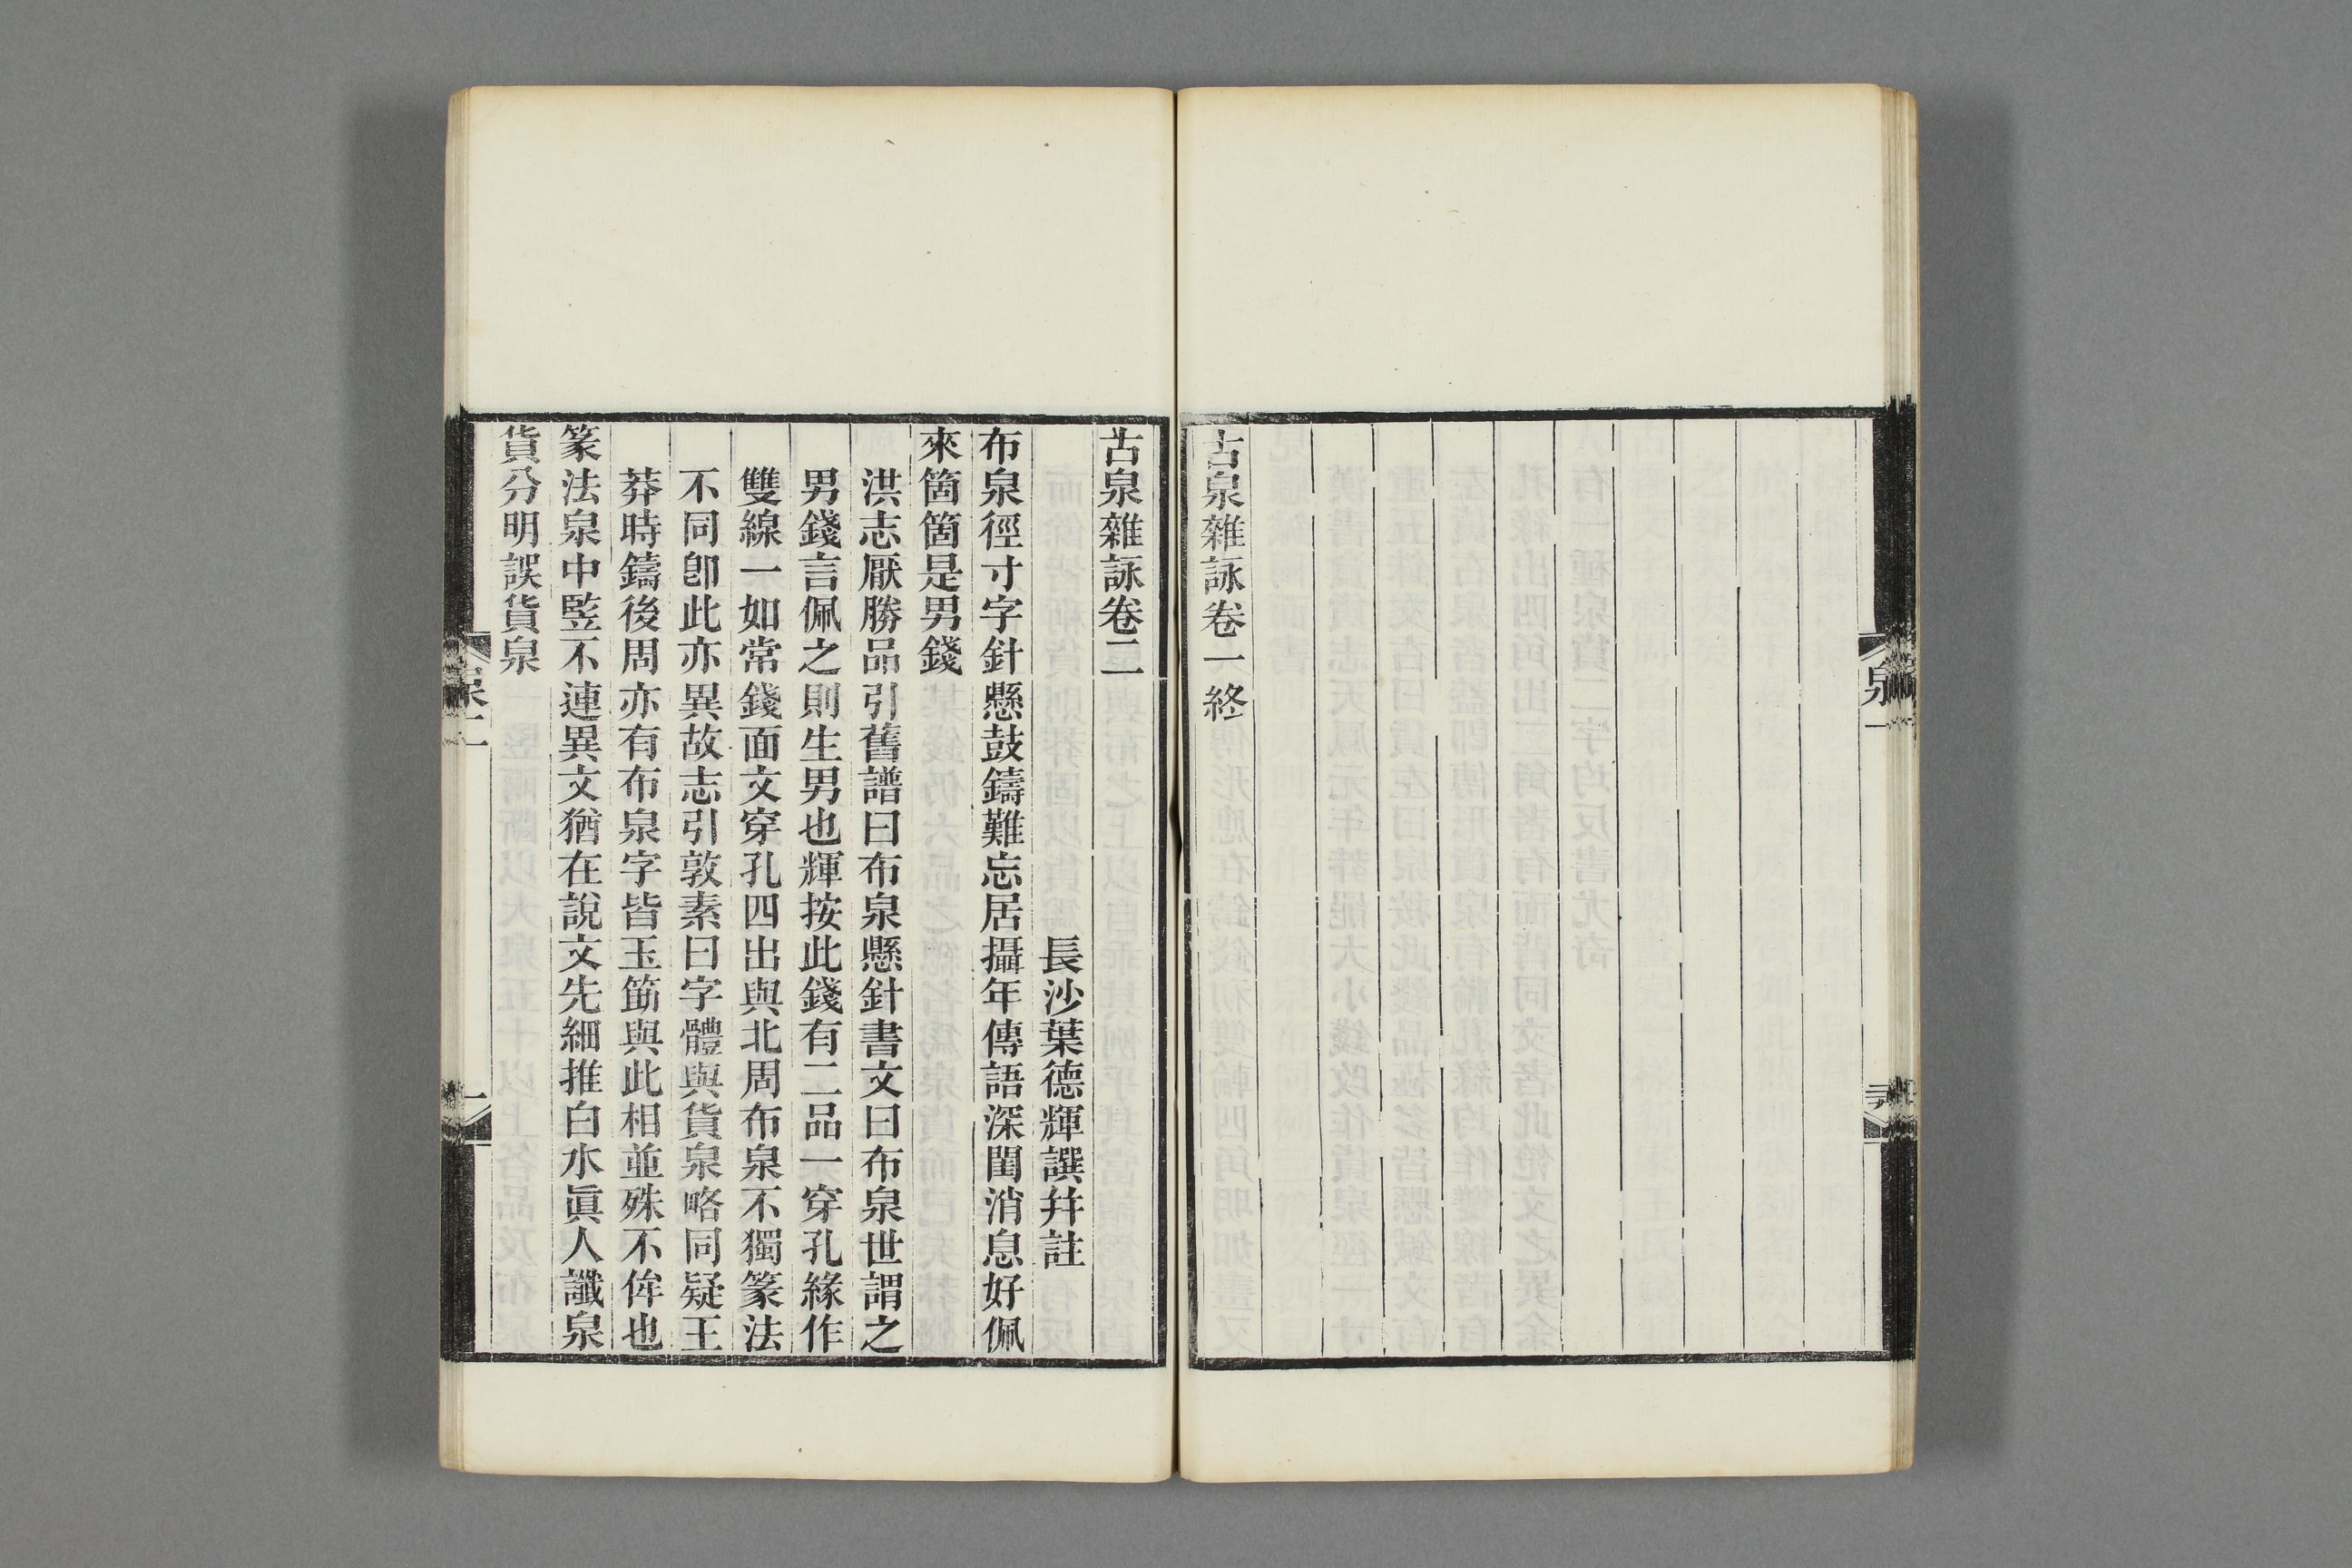 泉一
古泉雜詠卷一終
古泉雜詠卷二
長沙葉德輝譔幷註
布泉徑寸字針懸鼓鑄難忘居攝年傳語深閨消息好佩
來箇箇是男錢
洪志厭勝品引舊譜曰布泉懸針書文曰布泉世謂之
男錢言佩之則生男也輝按此錢有二品一穿孔緣作
雙線一如常錢面文穿孔四出與北周布泉不獨篆法
不同卽此亦異故志引敦素曰字體與貨泉略同疑王
莽時鑄後周亦有布泉字皆玉筯與此相並殊不侔也
篆法泉中竪不連異文猶在說文先細推白水眞人讖泉
貨分明誤貨泉
泉二
一